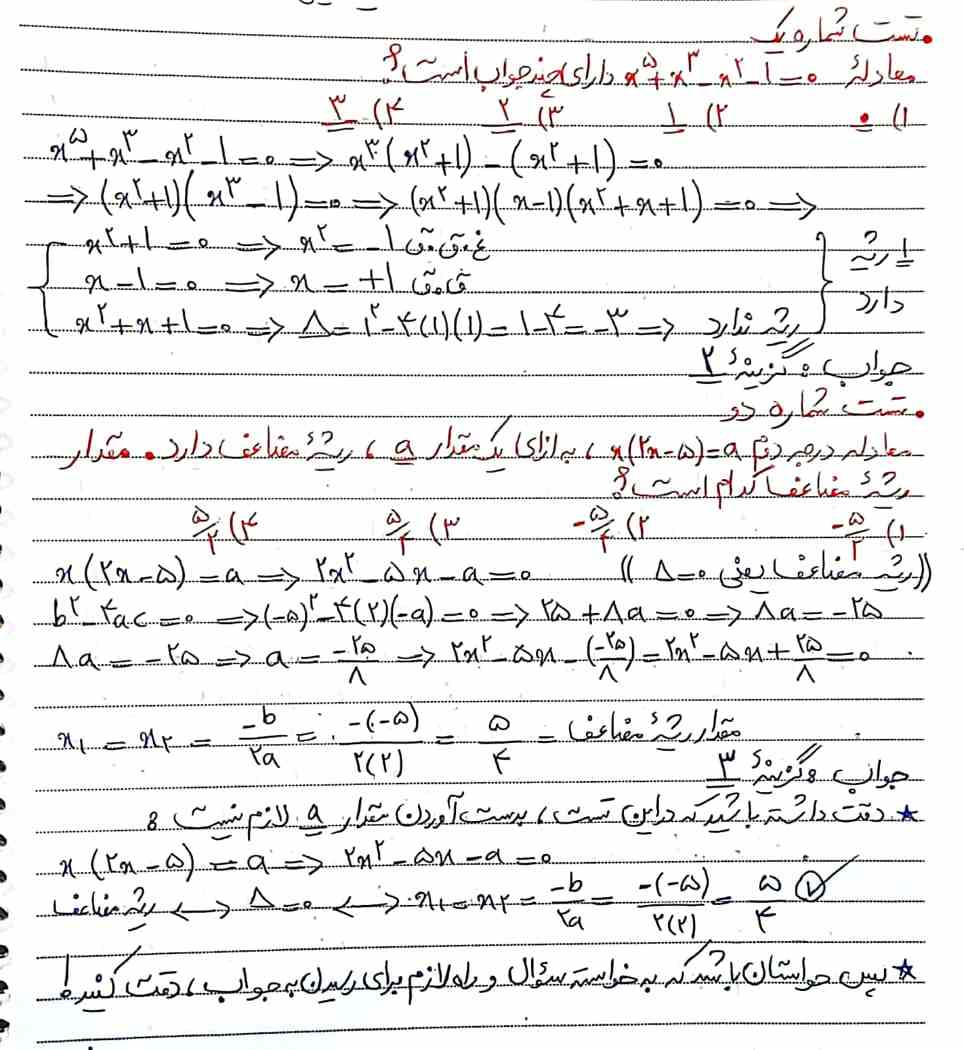 • تست شماره یک
معادلهٔ x⁵+x³-x²-1=0 دارای چند جواب است؟
۱) ۰ ۲) ۱ ۳) ۲ ۴) ۳
x⁵+x³-x²-1=0 ⇒ x³(x²+1)-(x²+1)=0
⇒(x²+1)(x³-1)=0 ⇒ (x²+1)(x-1)(x²+x+1)=0 ⇒
x²+1=0 ⇒ x²=-1 غ.ق.ق
x-1=0 ⇒ x=+1 ق.ق
x²+x+1=0 ⇒ Δ=1²-4(1)(1)=1-4=-3 ⇒ ریشه ندارد
۱ ریشه
دارد
جواب: گزینهٔ ۲
• تست شماره دو
معادله درجه دوم x(۲x-۵)=a، به ازای یک مقدار a، ریشهٔ مضاعف دارد. مقدار
ریشهٔ مضاعف کدام است؟
۱) -۵/۲ ۲) -۵/۴ ۳) ۵/۴ ۴) ۵/۲
x(۲x-۵)=a ⇒ ۲x²-۵x-a=۰ ((ریشه مضاعف یعنی Δ=۰))
b²-۴ac=۰ ⇒(-۵)²-۴(۲)(-a)=۰ ⇒ ۲۵+۸a=۰ ⇒ ۸a=-۲۵
۸a=-۲۵ ⇒ a=-۲۵/۸ ⇒ ۲x²-۵x-(-۲۵/۸)=۲x²-۵x+۲۵/۸=۰
x₁=x₂=-b/۲a=-(-۵)/۲(۲)=۵/۴= مقدار ریشهٔ مضاعف
جواب: گزینهٔ ۳
★ دقت داشته باشید که در این تست، بدست آوردن مقدار a لازم نیست:
x(۲x-۵)=a ⇒ ۲x²-۵x-a=۰
ریشه مضاعف ↔ Δ=۰ ↔ x₁=x₂=-b/۲a=-(-۵)/۲(۲)=۵/۴ ✓
★ پس حواستان باشد که به خواسته سؤال و راه لازم برای رسیدن به جواب، دقت کنید!